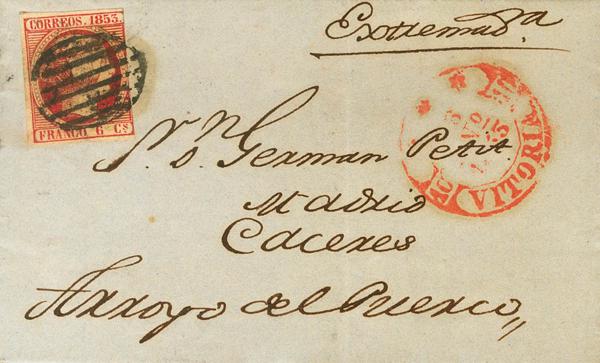 CORREOS. 1853.
FRANCO 6 Cs
Extremad.ª
VITORIA
S.r D.n German Petit
Madrid
Caceres
Arroyo del Puerco